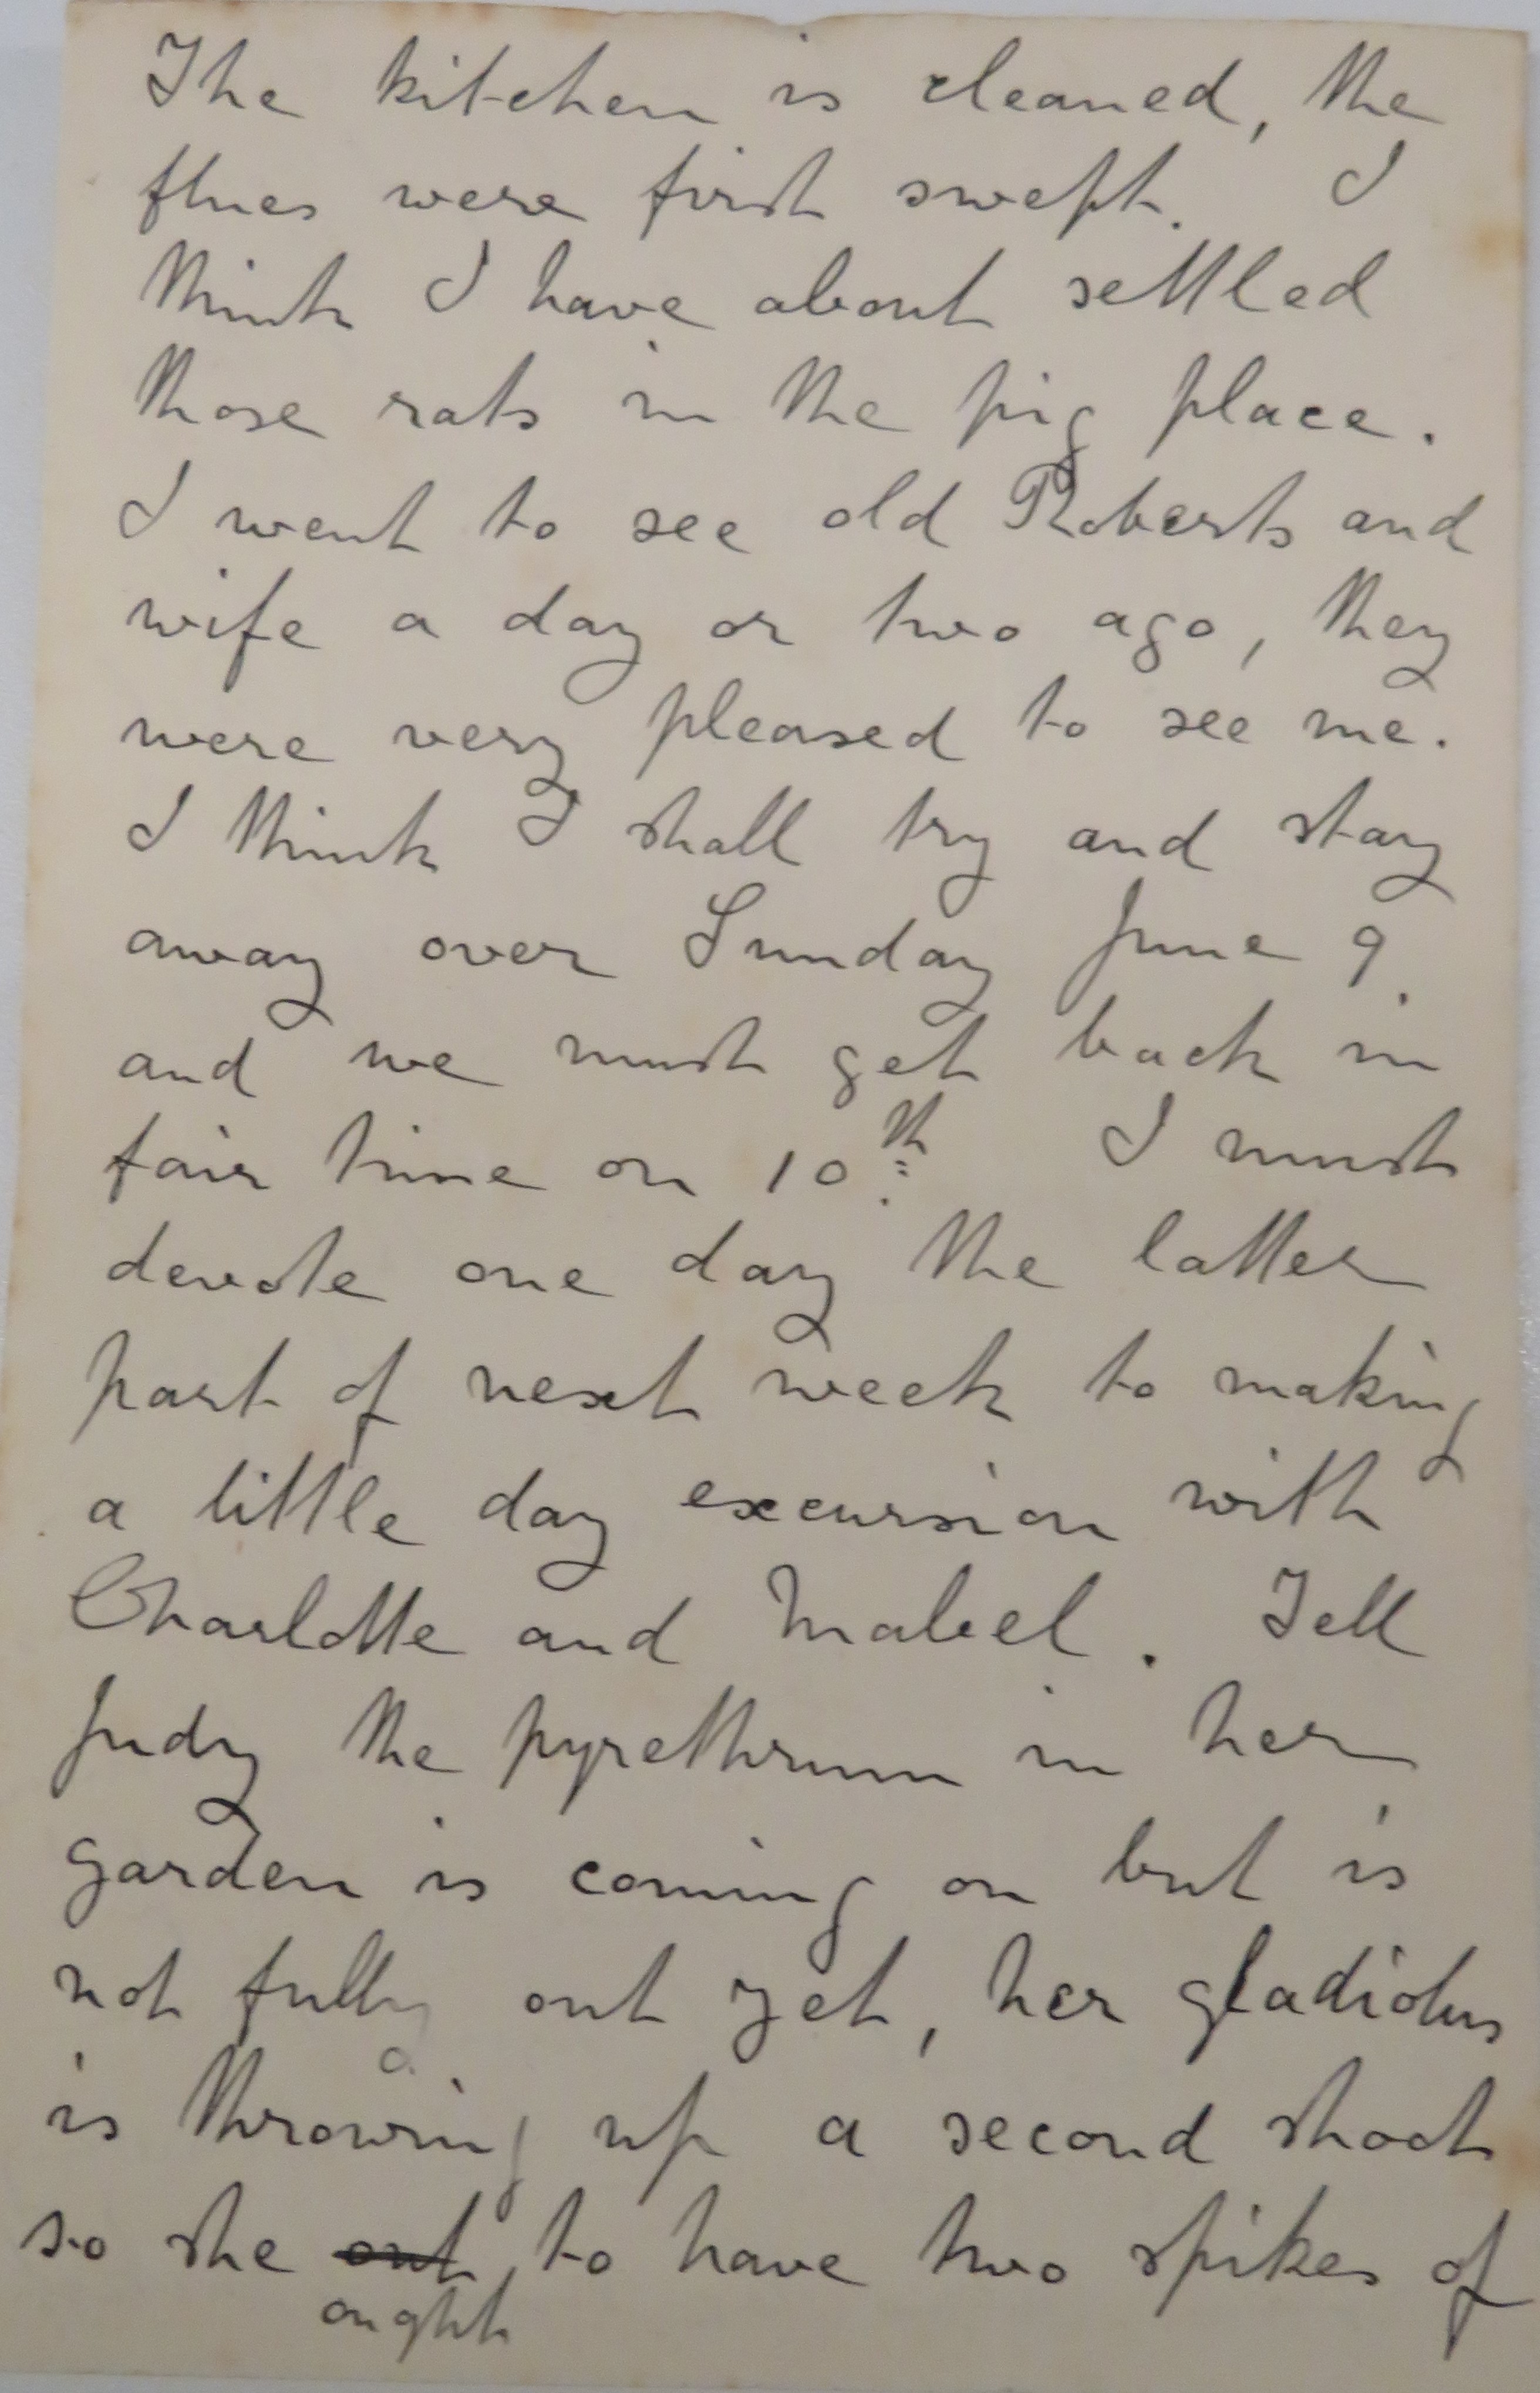 The kitchen is cleaned, the
flues were first swept. I
think I have about settled
those rats in the pig place.
I went to see old Roberts and
wife a day or two ago, they
were very pleased to see me.
I think I shall try and stay
away over Sunday June 9.
and we must get back in
fair time on 10th. I must
devote one day the latter
part of next week to making
a little day excursion with
Charlotte and Mabel. Tell
Judy the pyrethrum in her
garden is coming on but is
not fully out yet, her gladiolus
is throwing up a second shoot
so she out to have two spikes of
ought